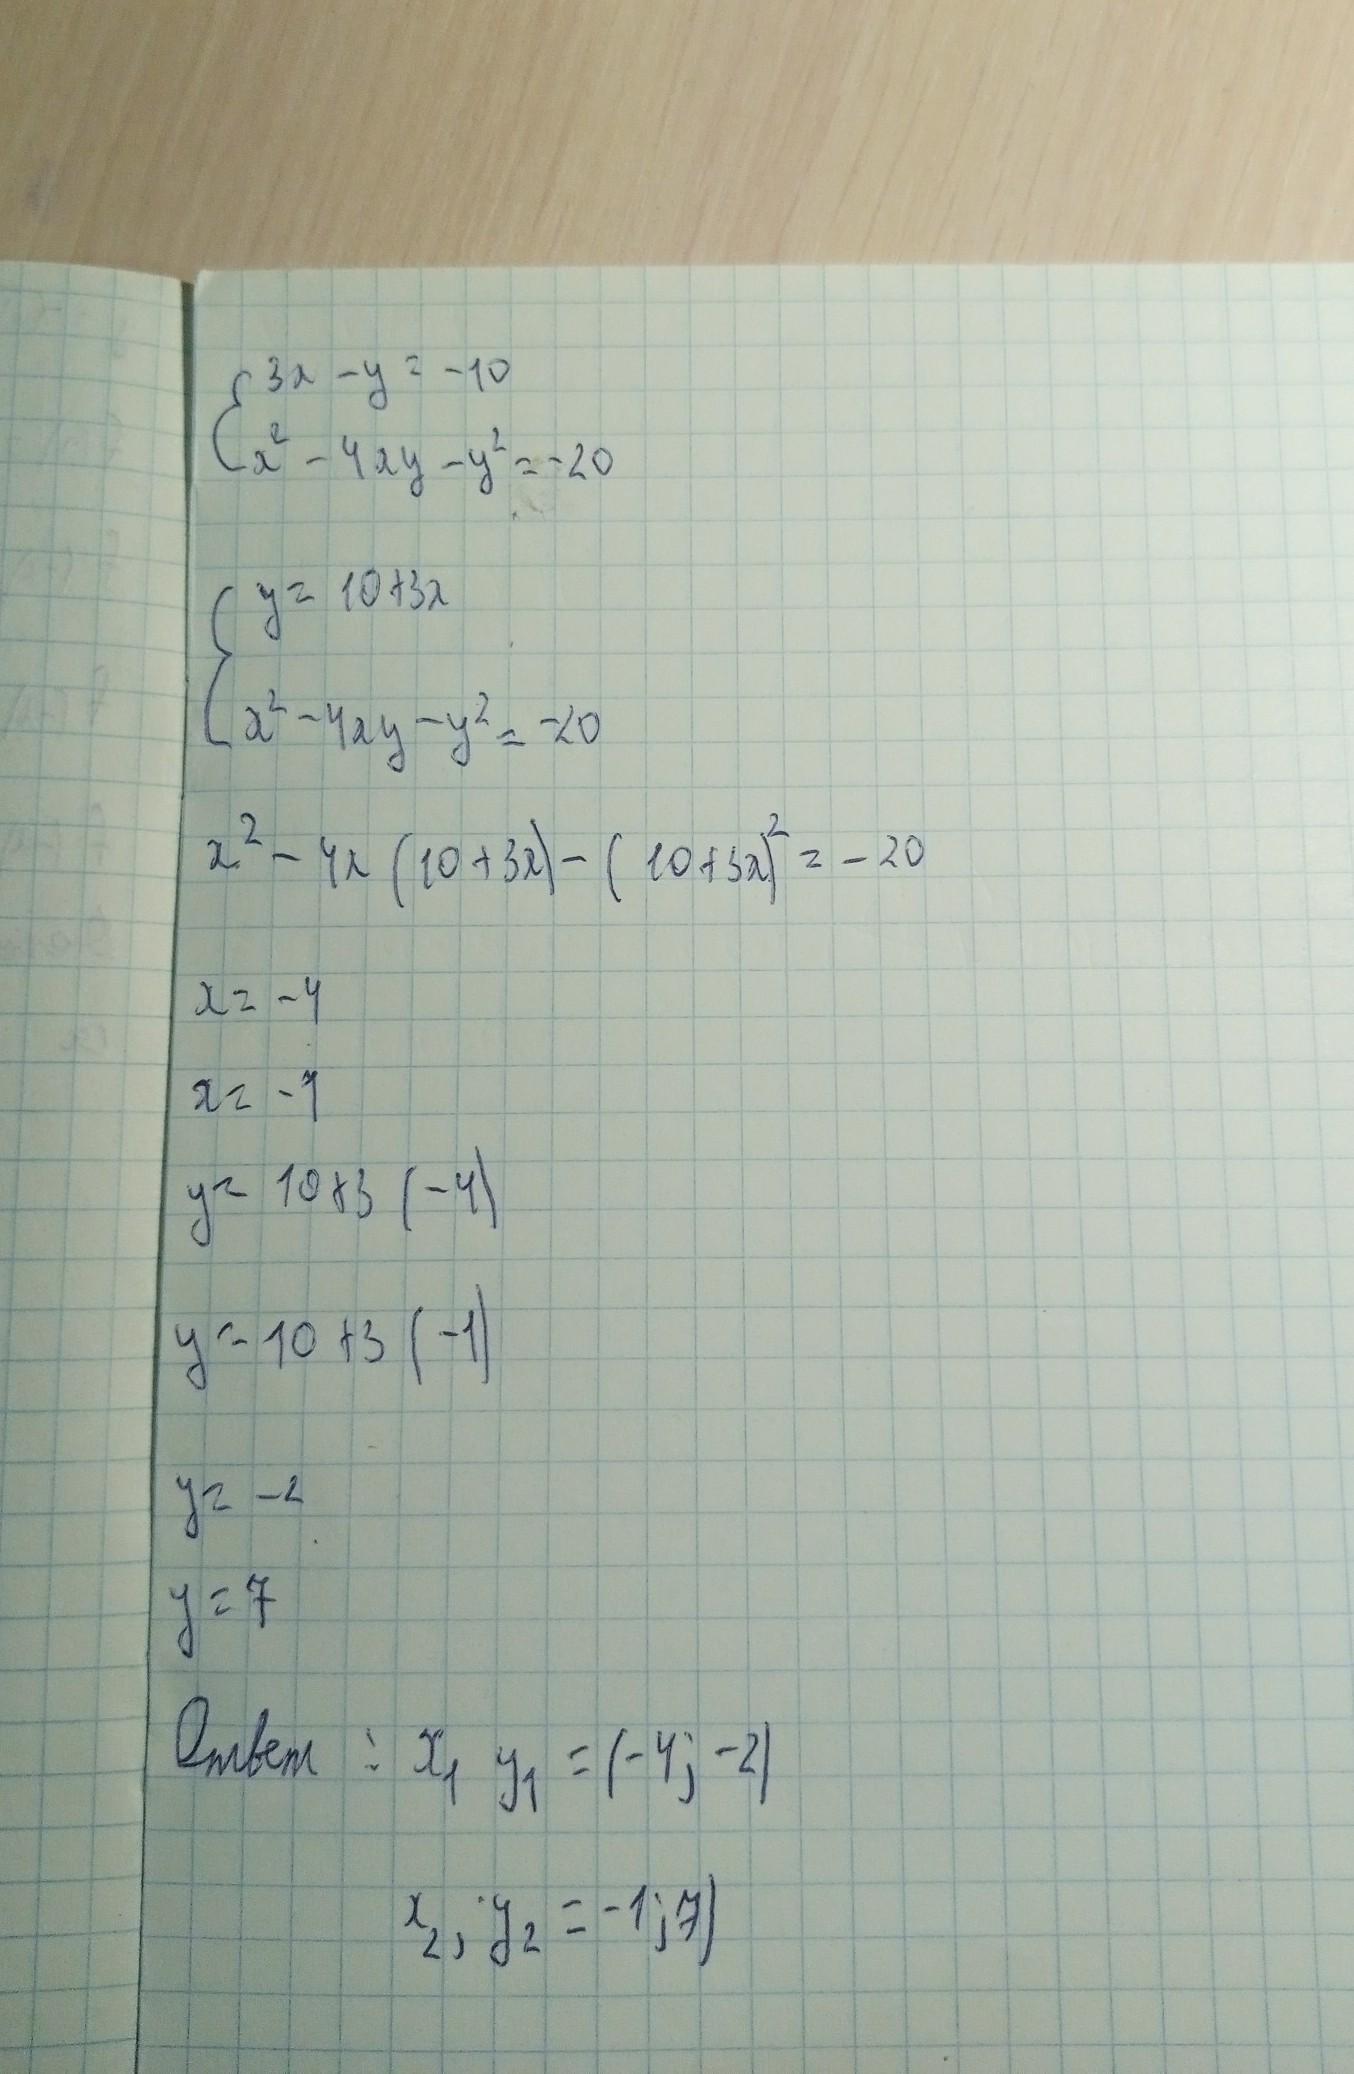 3x - y = -10
x² - 4xy - y² = -20
y = 10+3x
x² - 4xy - y² = -20
x² - 4x (10+3x) - (10+3x)² = -20
x = -4
x = -1
y = 10+3 (-4)
y = 10+3 (-1)
y = -2
y = 7
Ответ : x₁ y₁ = (-4; -2)
x₂, y₂ = -1; 7)